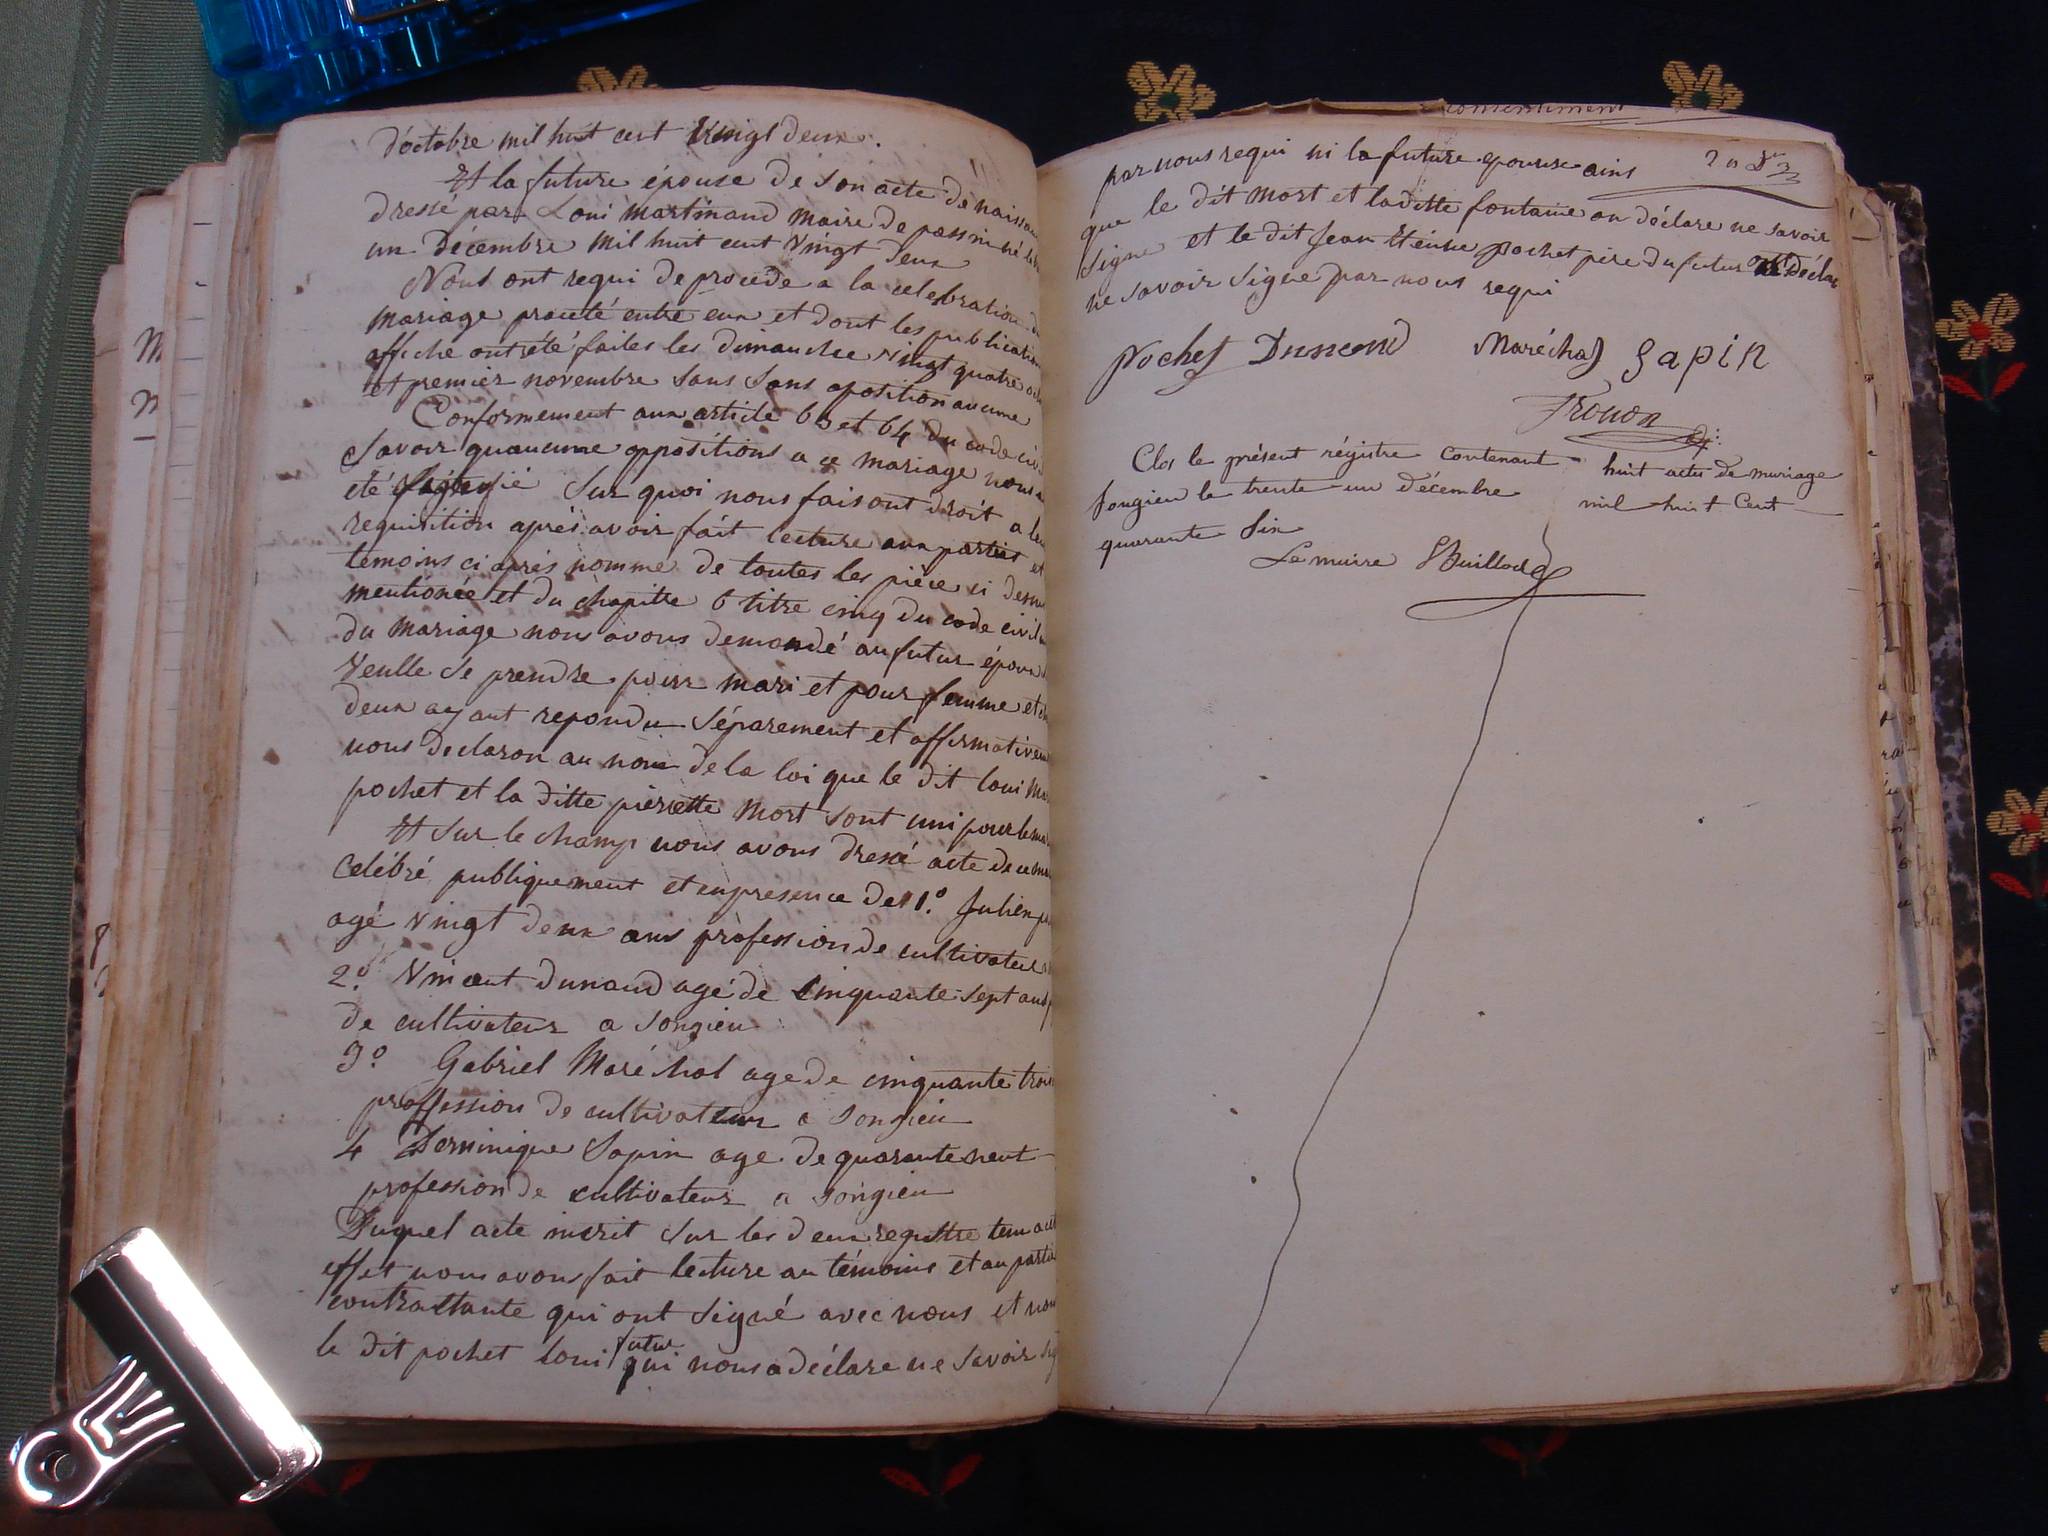 d'octobre mil huit cent vingt deux.
Et la future épouse de son acte de naissan
dressé par Loui martinand maire de passin né le
un Décembre mil huit cent vingt deux
Nous ont requi de procédé a la celebration du
mariage projeté entre eux et dont les publication
affiche ont été faites les dimanche vingt quatre
et premier novembre sans sans oposition aucune
Conformement aux article 63 et 64 du code civil
Savoir quaucune oppositions a ce mariage nous a
été Sur quoi nous faisont droit a leur
requisition après avoir fait lecture aux parties et
temoins ci après nommé de toutes les pièce ci dessus
mentionée et du chapitre 6 titre cinq du code civil
du mariage nous avons demandé au futur époux
Veulle se prendre pour mari et pour femme et
deux ayant repondu séparement et affirmativem
nous declaron au nom de la loi que le dit loui
pochet et la ditte pierrette mort sont uni pour le ma
Et sur le champ nous avons dressé acte de ce ma
celébré publiquement et en presence de 1.º Julien
agé vingt deux ans profession de cultivateur
2.º Vincent Dunand agé de cinquante sept ans
de cultivateur a songieu
3.º Gabriel Maréchal age de cinquante trois
proffession de cultivateur a songieu
4 Dominique Sapin age de quarante neuf
profession de cultivateur a songieu
Duquel acte inscrit sur les deux registre tenu a cet
effet nous avons fait lecture au témoins et au partie
contractante qui ont signé avec nous et non
le dit pochet loui futur qui nous a déclare ne savoir
consentiment
par nous requi ni la future epouse ains
que le dit mort et laditte fontaine on déclare ne savoir
signe et le dit Jean Etienne pochet père du futur déclar
ne savoir signe par nous requi
Pochet Dunand Maréchal Sapin
Clos le présent régistre contenant huit actes de mariage
Songieu le trente un Décembre mil huit Cent
quarante Six
Le maire